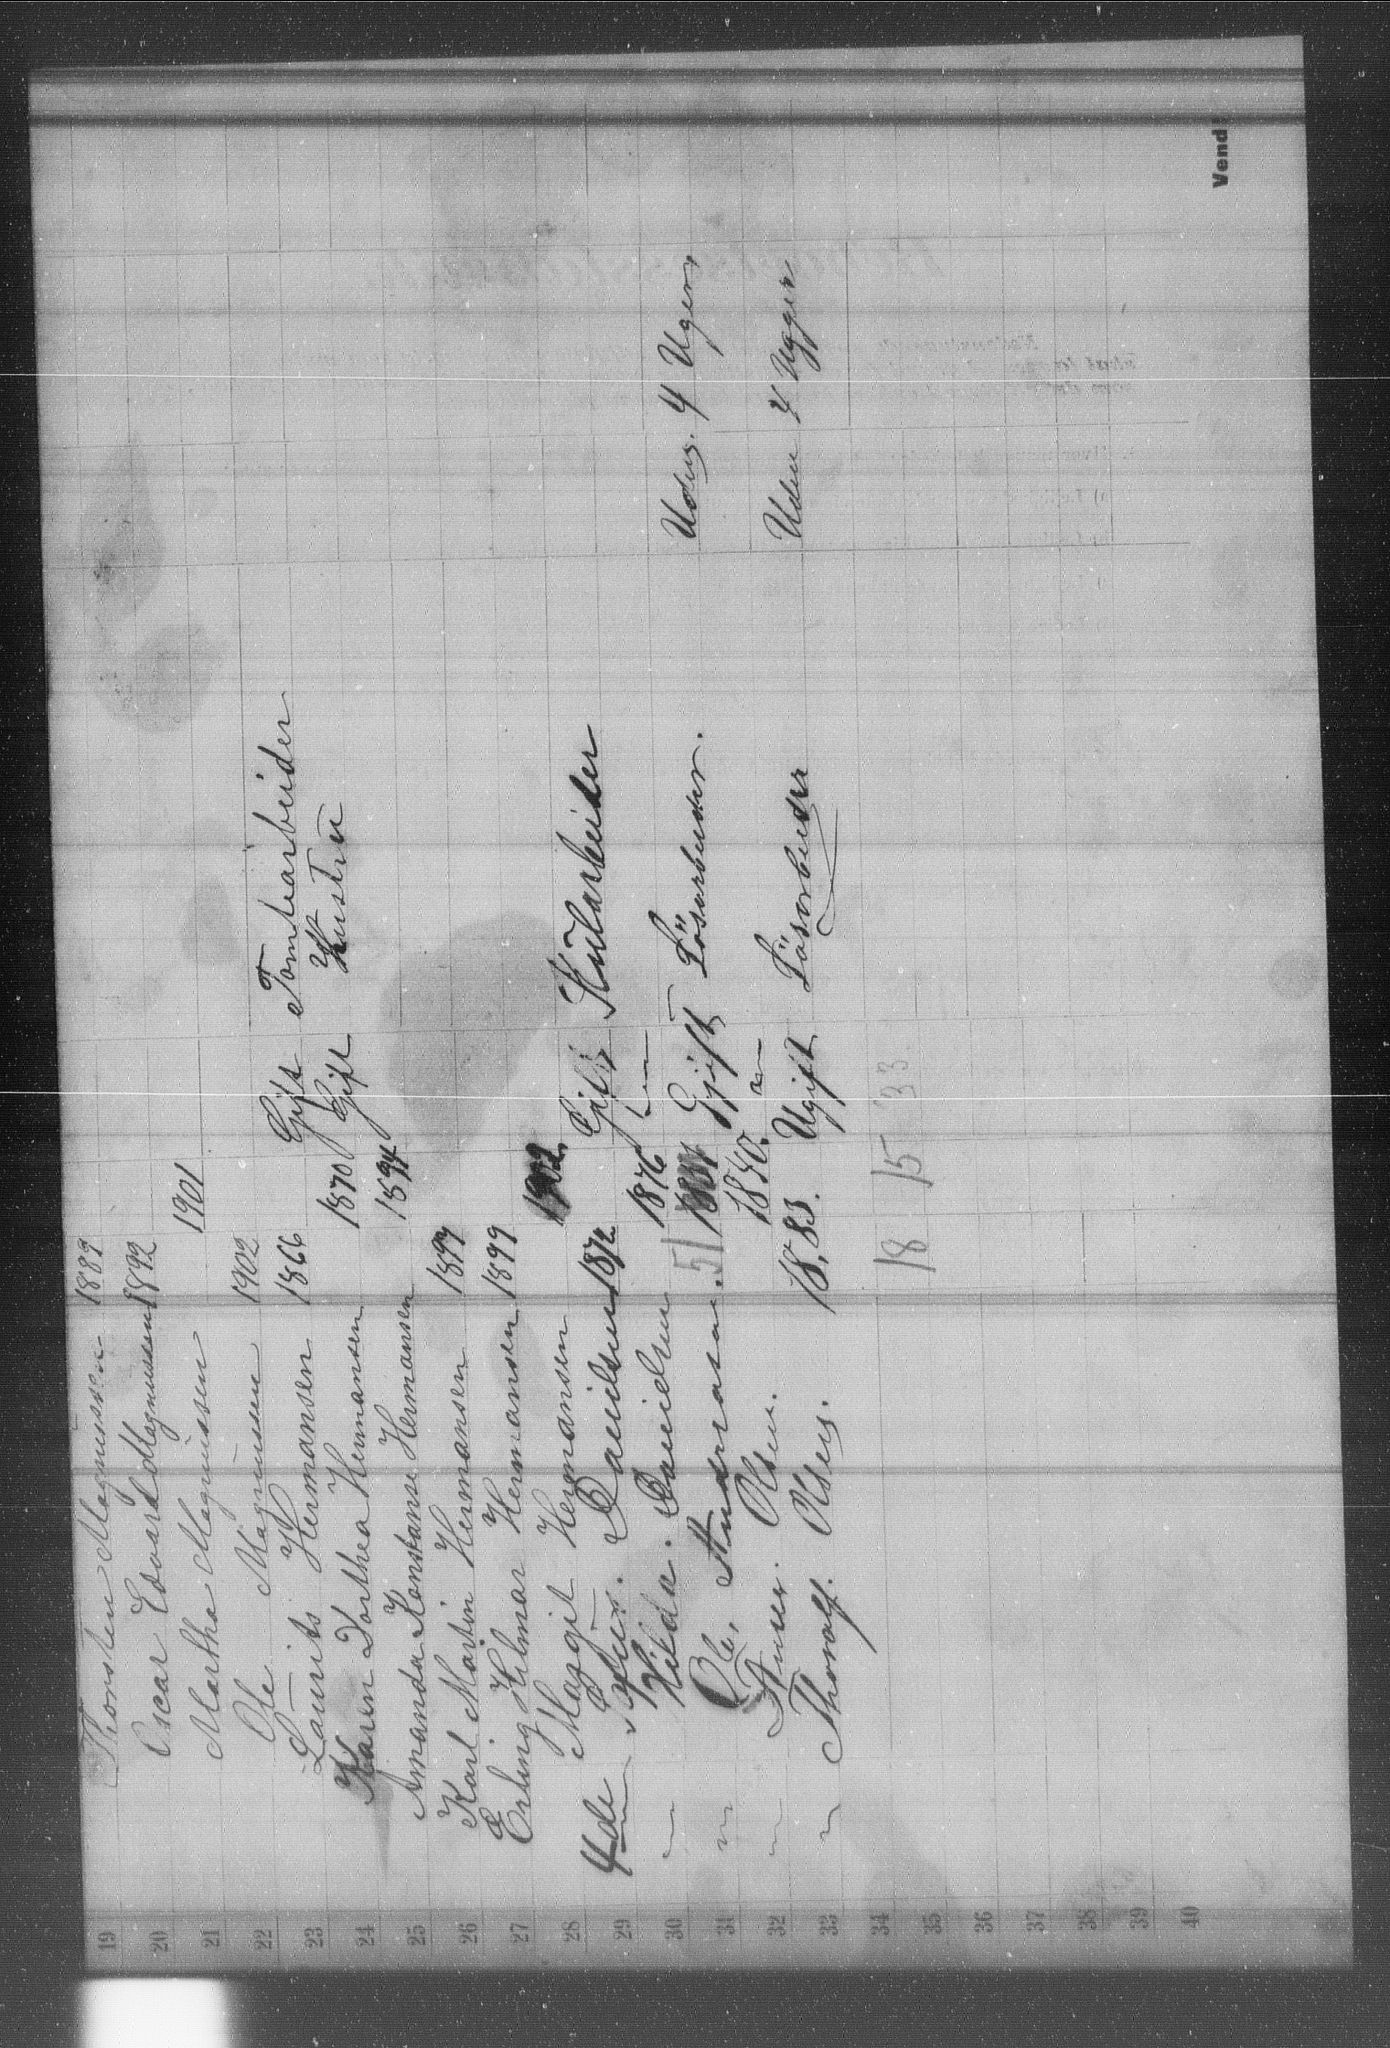 19 Thorsten Magnussen 1889
20 Oscar Edvard Magnussen 1892
21 Martha Magnussen 1901
22 Ole Magnussen 1902
23 Laurits Hermansen 1866 Gift Tomtearbeider
24 Karen Dorthea Hermansen 1870 Gift Hustru
25 Amanda Konstanse Hermansen 1894
26 Karl Martin Hermansen 1897
27 Erling Hilmar Hermansen 1899
28 Magit Hermansen 1902
29 4de Danielsen 1872 Gift Kularbeider
30 Hilda. Danielsen 1876
31 Ole, Andreasen. 51 Gjift Lösarbeider. 4 Uger
32 Olsen. 1840.
33 Thoralf. Olsen. 18,83. Ugift Lösarbeider Uden 4 Uger
34
35 18 15 33
36
37
38
39
40
Vend!